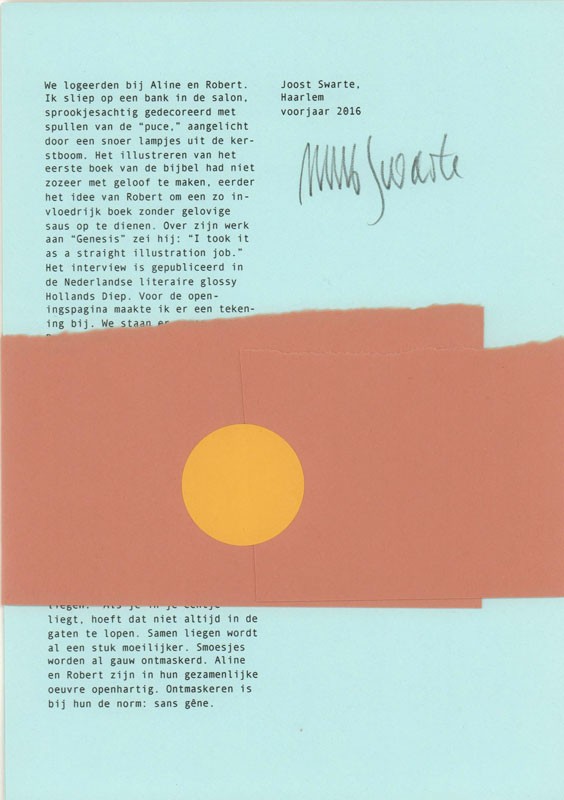 We logeerden bij Aline en Robert.
Ik sliep op een bank in de salon,
sprookjesachtig gedecoreerd met
spullen van de “puce,” aangelicht
door een snoer lampjes uit de ker-
stboom. Het illustreren van het
eerste boek van de bijbel had niet
zozeer met geloof te maken, eerder
het idee van Robert om een zo in-
vloedrijk boek zonder gelovige
saus op te dienen. Over zijn werk
aan “Genesis” zei hij: “I took it
as a straight illustration job.”
Het interview is gepubliceerd in
de Nederlandse literaire glossy
Hollands Diep. Voor de open-
ingspagina maakte ik er een teken-
ing bij. We staan
liegen. “Als je in je eentje
liegt, hoeft dat niet altijd in de
gaten te lopen. Samen liegen wordt
al een stuk moeilijker. Smoesjes
worden al gauw ontmaskerd. Aline
en Robert zijn in hun gezamenlijke
oeuvre openhartig. Ontmaskeren is
bij hun de norm: sans gêne.
Joost Swarte,
Haarlem
voorjaar 2016
Joost Swarte